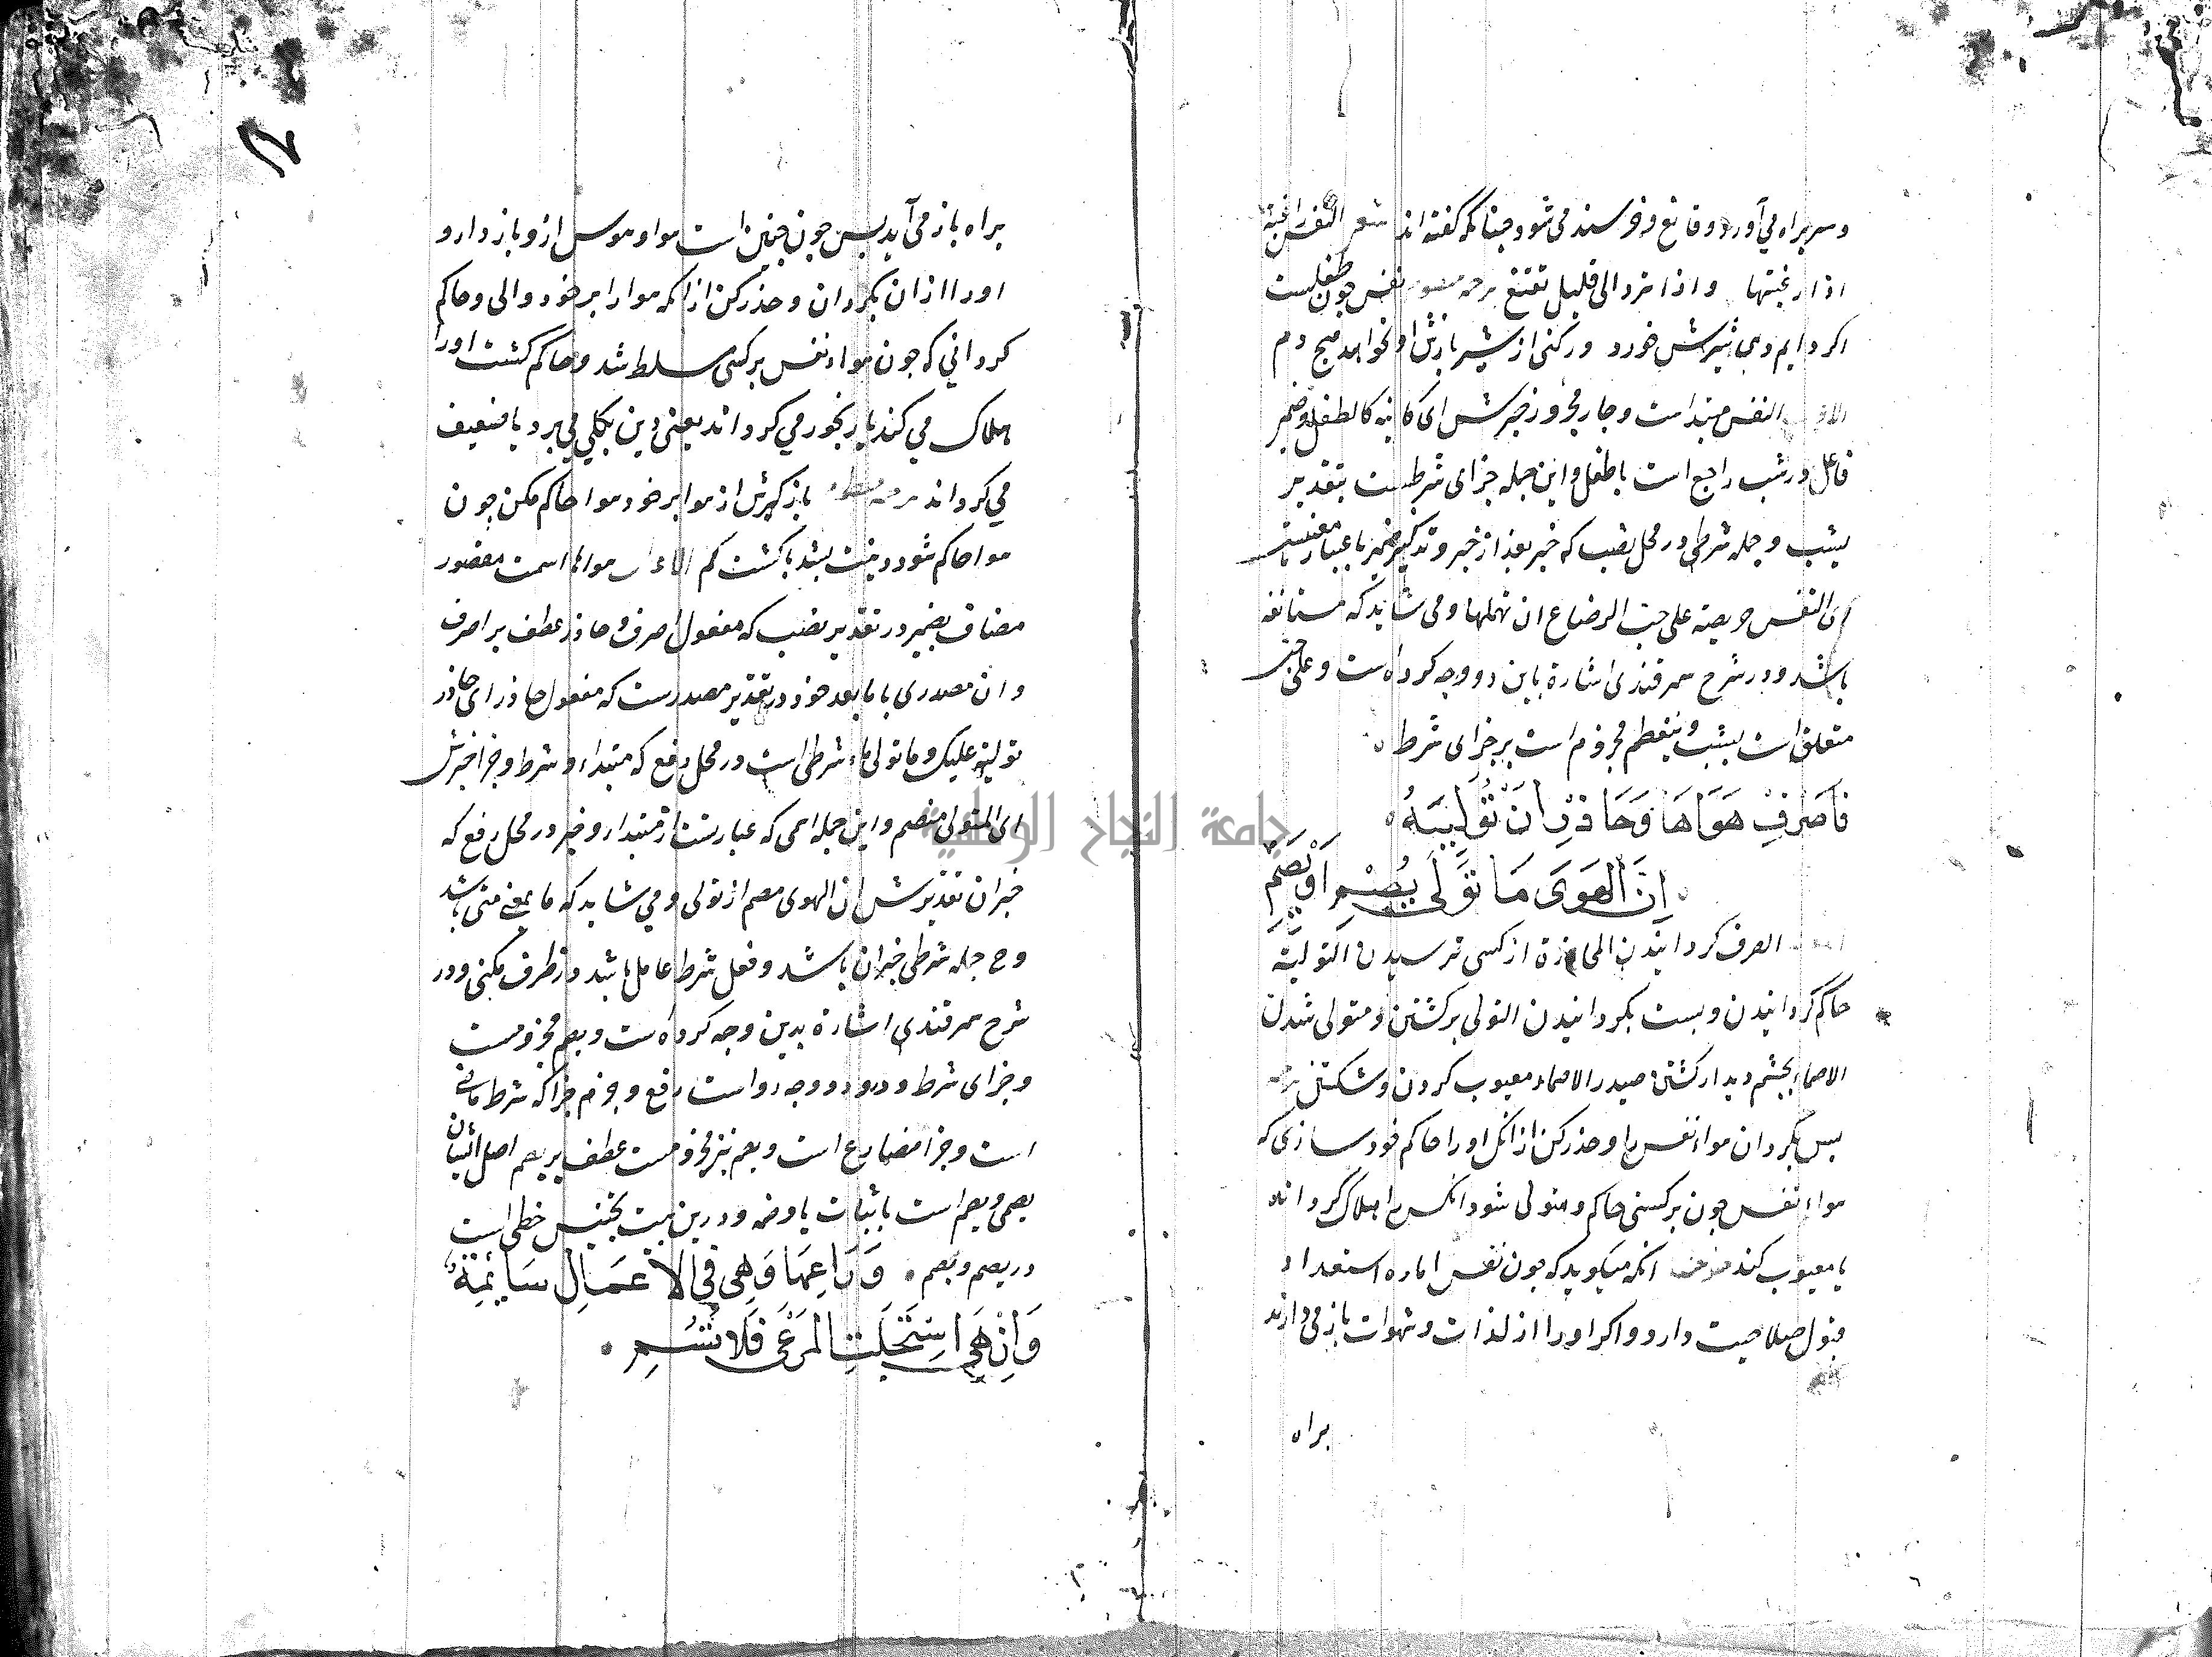 وسر براه می آورد و قانع و خرسند می شود چنانکه گفته اند شعر النفس راغبة
اذا رغبتها واذا ترد الی قلیل تقنع نفس چون طفلیست
اکر دایم دهی شیرش خورد ورکنی از شیر بازش او نخواهد هیچ دم
النفس مبتدا است و جار مجرور خبرش ای کائنه کالطفل وضمیر
فاعل در شب راجع است با طفل و این جمله جزای شرطست بتقدیر
یشب و جمله شرطی در محل نصب که خبر بعد از خبر و تذکیر ضمیر باعتبار
ای النفس حریصة علی حب الرضاع ان تهملها و می شاید که مستانفه
باشد و در شرح سمرقندی اشارة باین دو وجه کرده است و علی حب
متعلق است بیشب و ینفطم مجزوم است بر جزای شرط
فَاصْرِفْ هَوَاهَا وَحَاذِرْ اَنْ تُوَلِّيَهُ
اِنَّ الْهَوَى مَا تَوَلَّى يُصْمِ اَوْ يَصِمِ
الصرف کردانیدن المحاذرة از کسی ترسیدن التولیة
حاکم کردانیدن و بست بکردانیدن التولی برکشتن و متولی شدن
الاصماء بچشم دیدار کشتن صید الاصماء معیوب کردن و شکستن
بس بکردان هواء نفس را و حذر کن از انکه او را حاکم خود سازی که
هواء نفس چون بر کسی حاکم و متولی شود انکس را هلاک کرداند
یا معیوب کند انکه میکوید که چون نفس اماره استعداد
قبول صلاحیت دارد و اکر او را از لذات و شهوات باز می دارند
براه
براه باز می آید بس چون چنین است هوا و هوس ازو باز دار و
او را ازان بکردان و حذر کن از انکه هوا را بر خود والی و حاکم
کردانی که چون هواء نفس بر کسی مسلط شد و حاکم کشت او را
هلاک می کند یا رنجور می کرداند یعنی دین بکلی می برد یا ضعیف
می کرداند باز کیرش از هوا بر خود هوا حاکم مکن چون
هوا حاکم شود دینت بشد یا کشت کم هواها اسمت مقصور
مضاف بضمیر در تقدیر نصب که مفعول اصرف و حاذر عطف بر اصرف
و ان مصدری با ما بعد خود در تقدیر مصدرست که مفعول حاذر ای حاذر
تولیته علیک و ما تولی ما شرطی است در محل رفع که مبتدا و شرط و جزا خبرش
ای المتولی منصم و این جمله اسمی که عبارتست از مبتدا و خبر در محل رفع که
خبر ان تقدیرش ان الهوی مصم از تولی و می شاید که ما بمعنی متی باشد
وح جمله شرطی خبر ان باشد و فعل شرط عامل باشد در ظرف مکنی و در
شرح سمرقندی اشارة بدین وجه کرده است و یصم مجزومست
و جزای شرط و درو دو وجه رواست رفع و جزم چرا که شرط ماضی
است و جزا مضارع است و یصم نیز مجزومست عطف بر یصم اصل ایشان
یصمی و یصم است باثبات یا وضمه و درین بیت تجنیس خطی است
در یصم و یصم وَرَاعِهَا وَهِيَ فِي الْاَعْمَالِ سَائِمَةٌ
وَاِنْ هِيَ اسْتَحْلَتِ الْمَرْعَى فَلَا تُسِمِ
جامعة النجاح الوطنية